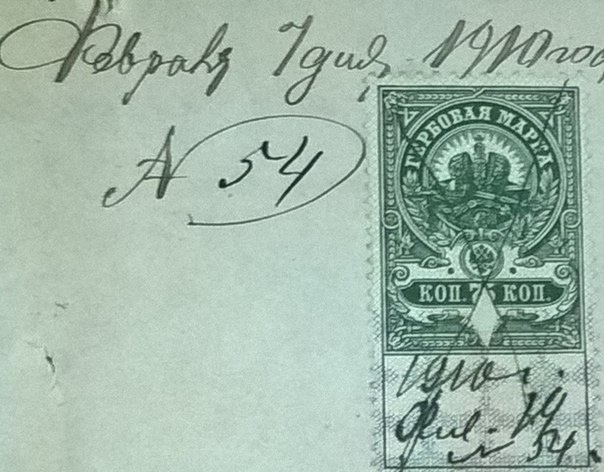 Февраля 7 дня 1910 го
№ 54
ГЕРБОВАЯ МАРКА
КОП. 75 КОП.
1910 г.
19
№ 54.